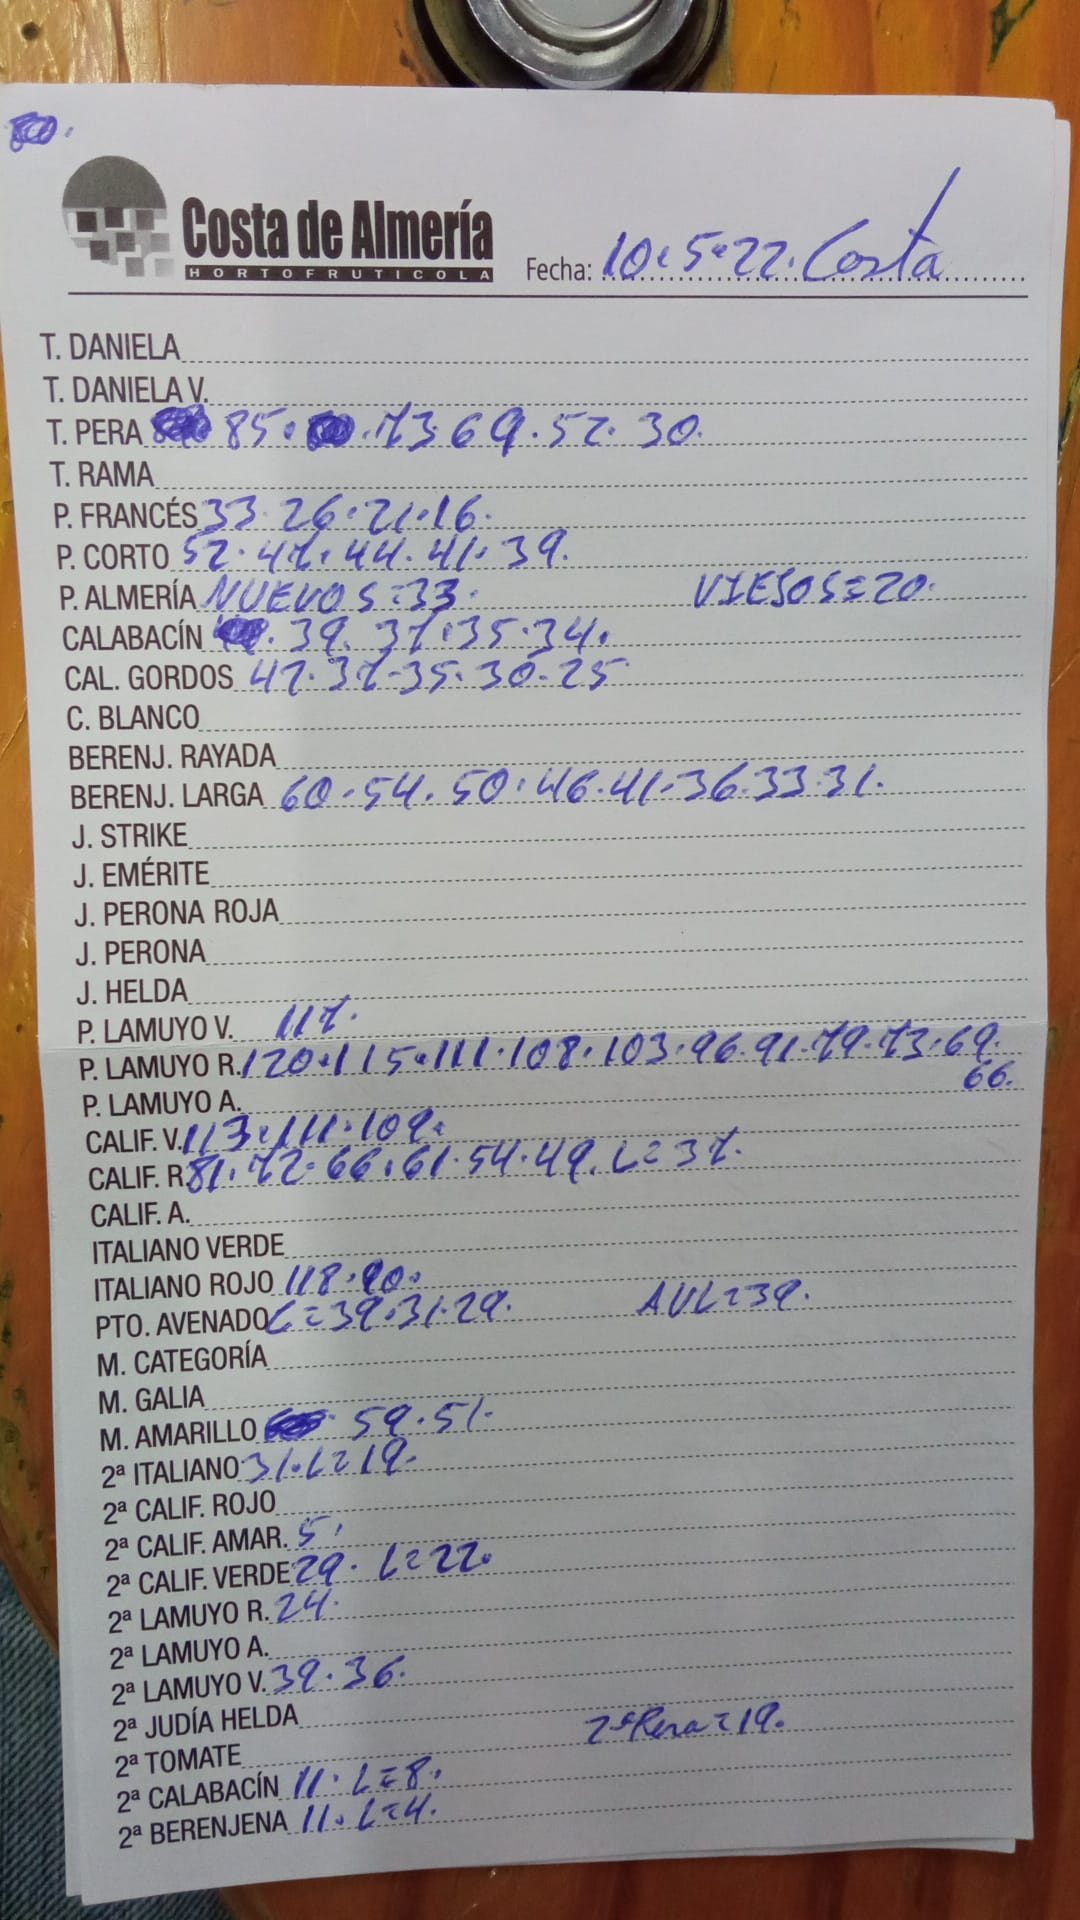 Costa de Almería
HORTOFRUTICOLA
Fecha: 10.5.22. Costa
T. DANIELA
T. DANIELA V.
T. PERA 85. 73 69. 52. 30.
T. RAMA
P. FRANCÉS 33. 26. 21. 16.
P. CORTO 52. 47. 44. 41. 39.
P. ALMERÍA NUEVOS=33. VIEJOS=20.
CALABACÍN 39. 37. 35. 34.
CAL. GORDOS 47. 37-35. 30-25
C. BLANCO
BERENJ. RAYADA
BERENJ. LARGA 60. 54. 50. 46. 41. 36. 33. 31.
J. STRIKE
J. EMÉRITE
J. PERONA ROJA
J. PERONA
J. HELDA
P. LAMUYO V. 117.
P. LAMUYO R. 120. 115. 111. 108. 103. 96. 91. 79. 73. 69.
66.
P. LAMUYO A.
CALIF. V. 113. 111. 109.
CALIF. R. 81. 72. 66. 61. 54. 49. L=37.
CALIF. A.
ITALIANO VERDE
ITALIANO ROJO 118. 90.
PTO. AVENADO L=39. 31. 29. AVL=39.
M. CATEGORÍA
M. GALIA
M. AMARILLO 59. 51.
2ª ITALIANO 31. L=19.
2ª CALIF. ROJO
2ª CALIF. AMAR. 5.
2ª CALIF. VERDE 29. L=22.
2ª LAMUYO R. 24.
2ª LAMUYO A.
2ª LAMUYO V. 39. 36.
2ª JUDÍA HELDA
2ª Pera=19.
2ª TOMATE
2ª CALABACÍN 11. L=8.
2ª BERENJENA 11. L=4.